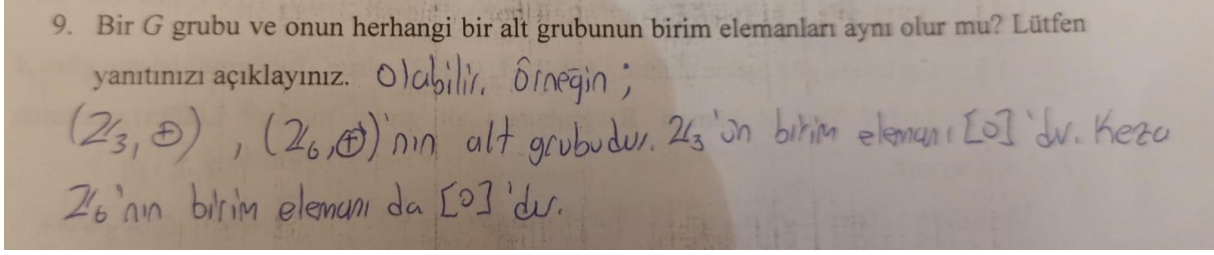 9. Bir G grubu ve onun herhangi bir alt grubunun birim elemanları aynı olur mu? Lütfen
yanıtınızı açıklayınız. Olabilir. Örneğin ;
(ℤ₃, ⊕) , (ℤ₆, ⊕)'nın alt grubudur. ℤ₃'ün birim elemanı [0]'dır. Keza
ℤ₆'nın birim elemanı da [0]'dır.